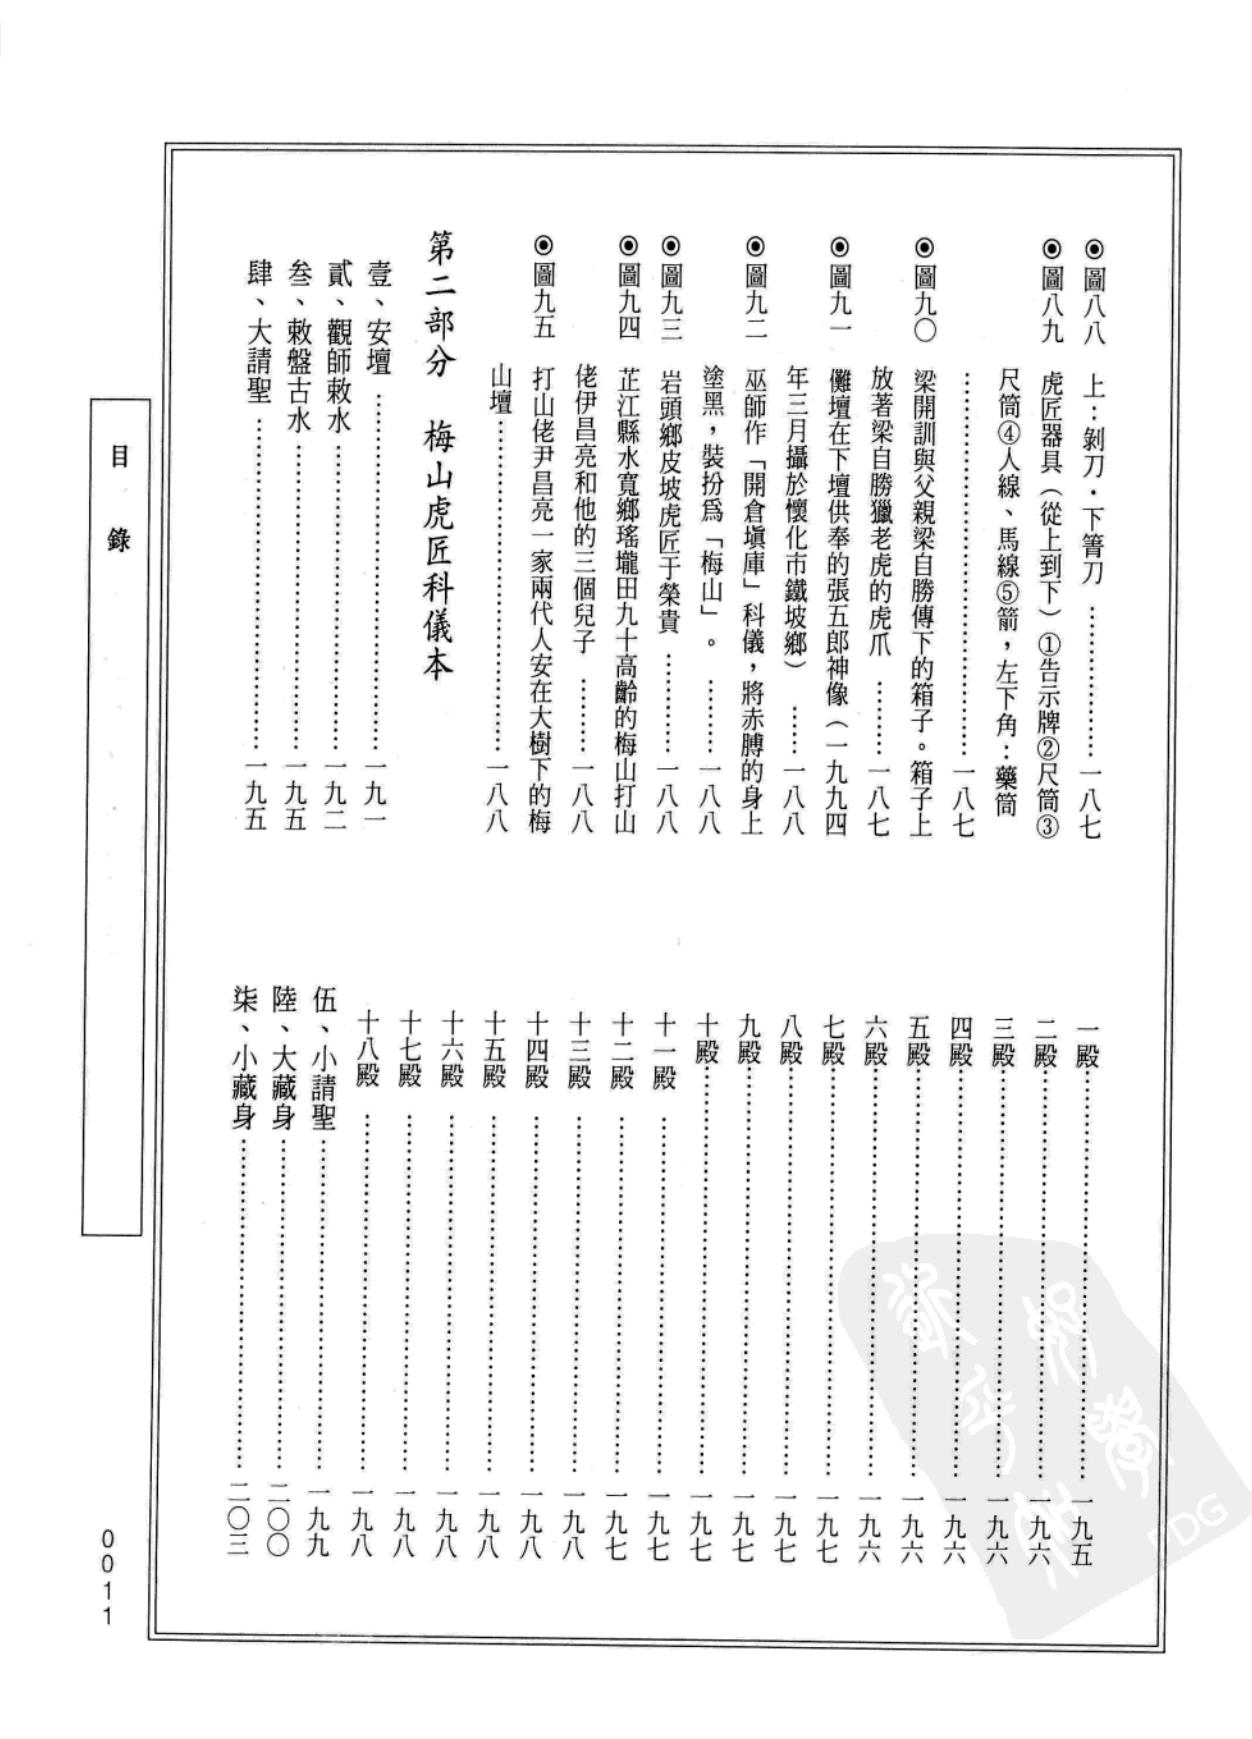 ◉圖八八　上：剝刀．下箐刀…………一八七
◉圖八九　虎匠器具（從上到下）①告示牌②尺筒③
尺筒④人線、馬線⑤箭，左下角：藥筒
…………一八七
◉圖九〇　梁開訓與父親梁自勝傳下的箱子。箱子上
放著梁自勝獵老虎的虎爪…………一八七
◉圖九一　儺壇在下壇供奉的張五郎神像（一九九四
年三月攝於懷化市鐵坡鄉）……一八八
◉圖九二　巫師作「開倉塡庫」科儀，將赤膊的身上
塗黑，裝扮爲「梅山」。…………一八八
◉圖九三　岩頭鄉皮坡虎匠于榮貴…………一八八
◉圖九四　芷江縣水寬鄉瑤壠田九十高齡的梅山打山
佬伊昌亮和他的三個兒子…………一八八
◉圖九五　打山佬尹昌亮一家兩代人安在大樹下的梅
山壇…………一八八
第二部分　梅山虎匠科儀本
壹、安壇…………一九一
貳、觀師敕水…………一九二
叁、敕盤古水…………一九五
肆、大請聖…………一九五
一殿…………一九五
二殿…………一九六
三殿…………一九六
四殿…………一九六
五殿…………一九六
六殿…………一九六
七殿…………一九七
八殿…………一九七
九殿…………一九七
十殿…………一九七
十一殿…………一九七
十二殿…………一九七
十三殿…………一九八
十四殿…………一九八
十五殿…………一九八
十六殿…………一九八
十七殿…………一九八
十八殿…………一九八
伍、小請聖…………一九九
陸、大藏身…………二〇〇
柒、小藏身…………二〇三
目錄
0011
PDG